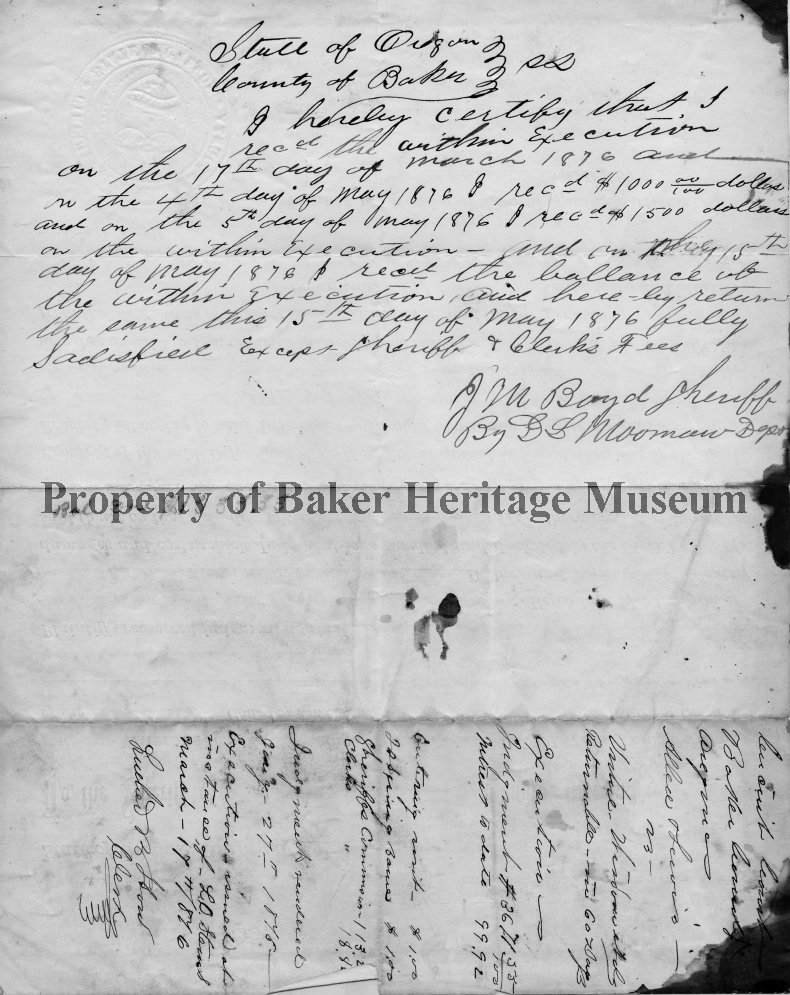 State of Oregon
County of Baker } ss
I hereby certify that I
recd the within Execution
on the 17th day of March 1876 and
on the 4th day of May 1876 I recd $1000 00/100 dollars
and on the 5th day of May 1876 I recd $1500 dollars
on the within Execution - and on the 15th
day of May 1876 I recd the ballance of
the within Execution, and here-by return
the same this 15th day of May 1876 fully
Sadisfied Except Sheriff & Clerks Fees
J M Boyd Sheriff
By D L Moomaw Dept
Property of Baker Heritage Museum
Circuit Court
Baker County
Oregon
Allen & Lewis
vs
Virtue
Returnable in 60 Days
Execution
Judgment $
Intrest to date 99.92
Entering writ $ 1.00
Issuing same $ 1.00
Sheriffs Commission
Clerks "
Judgment rendered
Execution issued at
instance of L O Stearns
March 17th 1876
Clerk